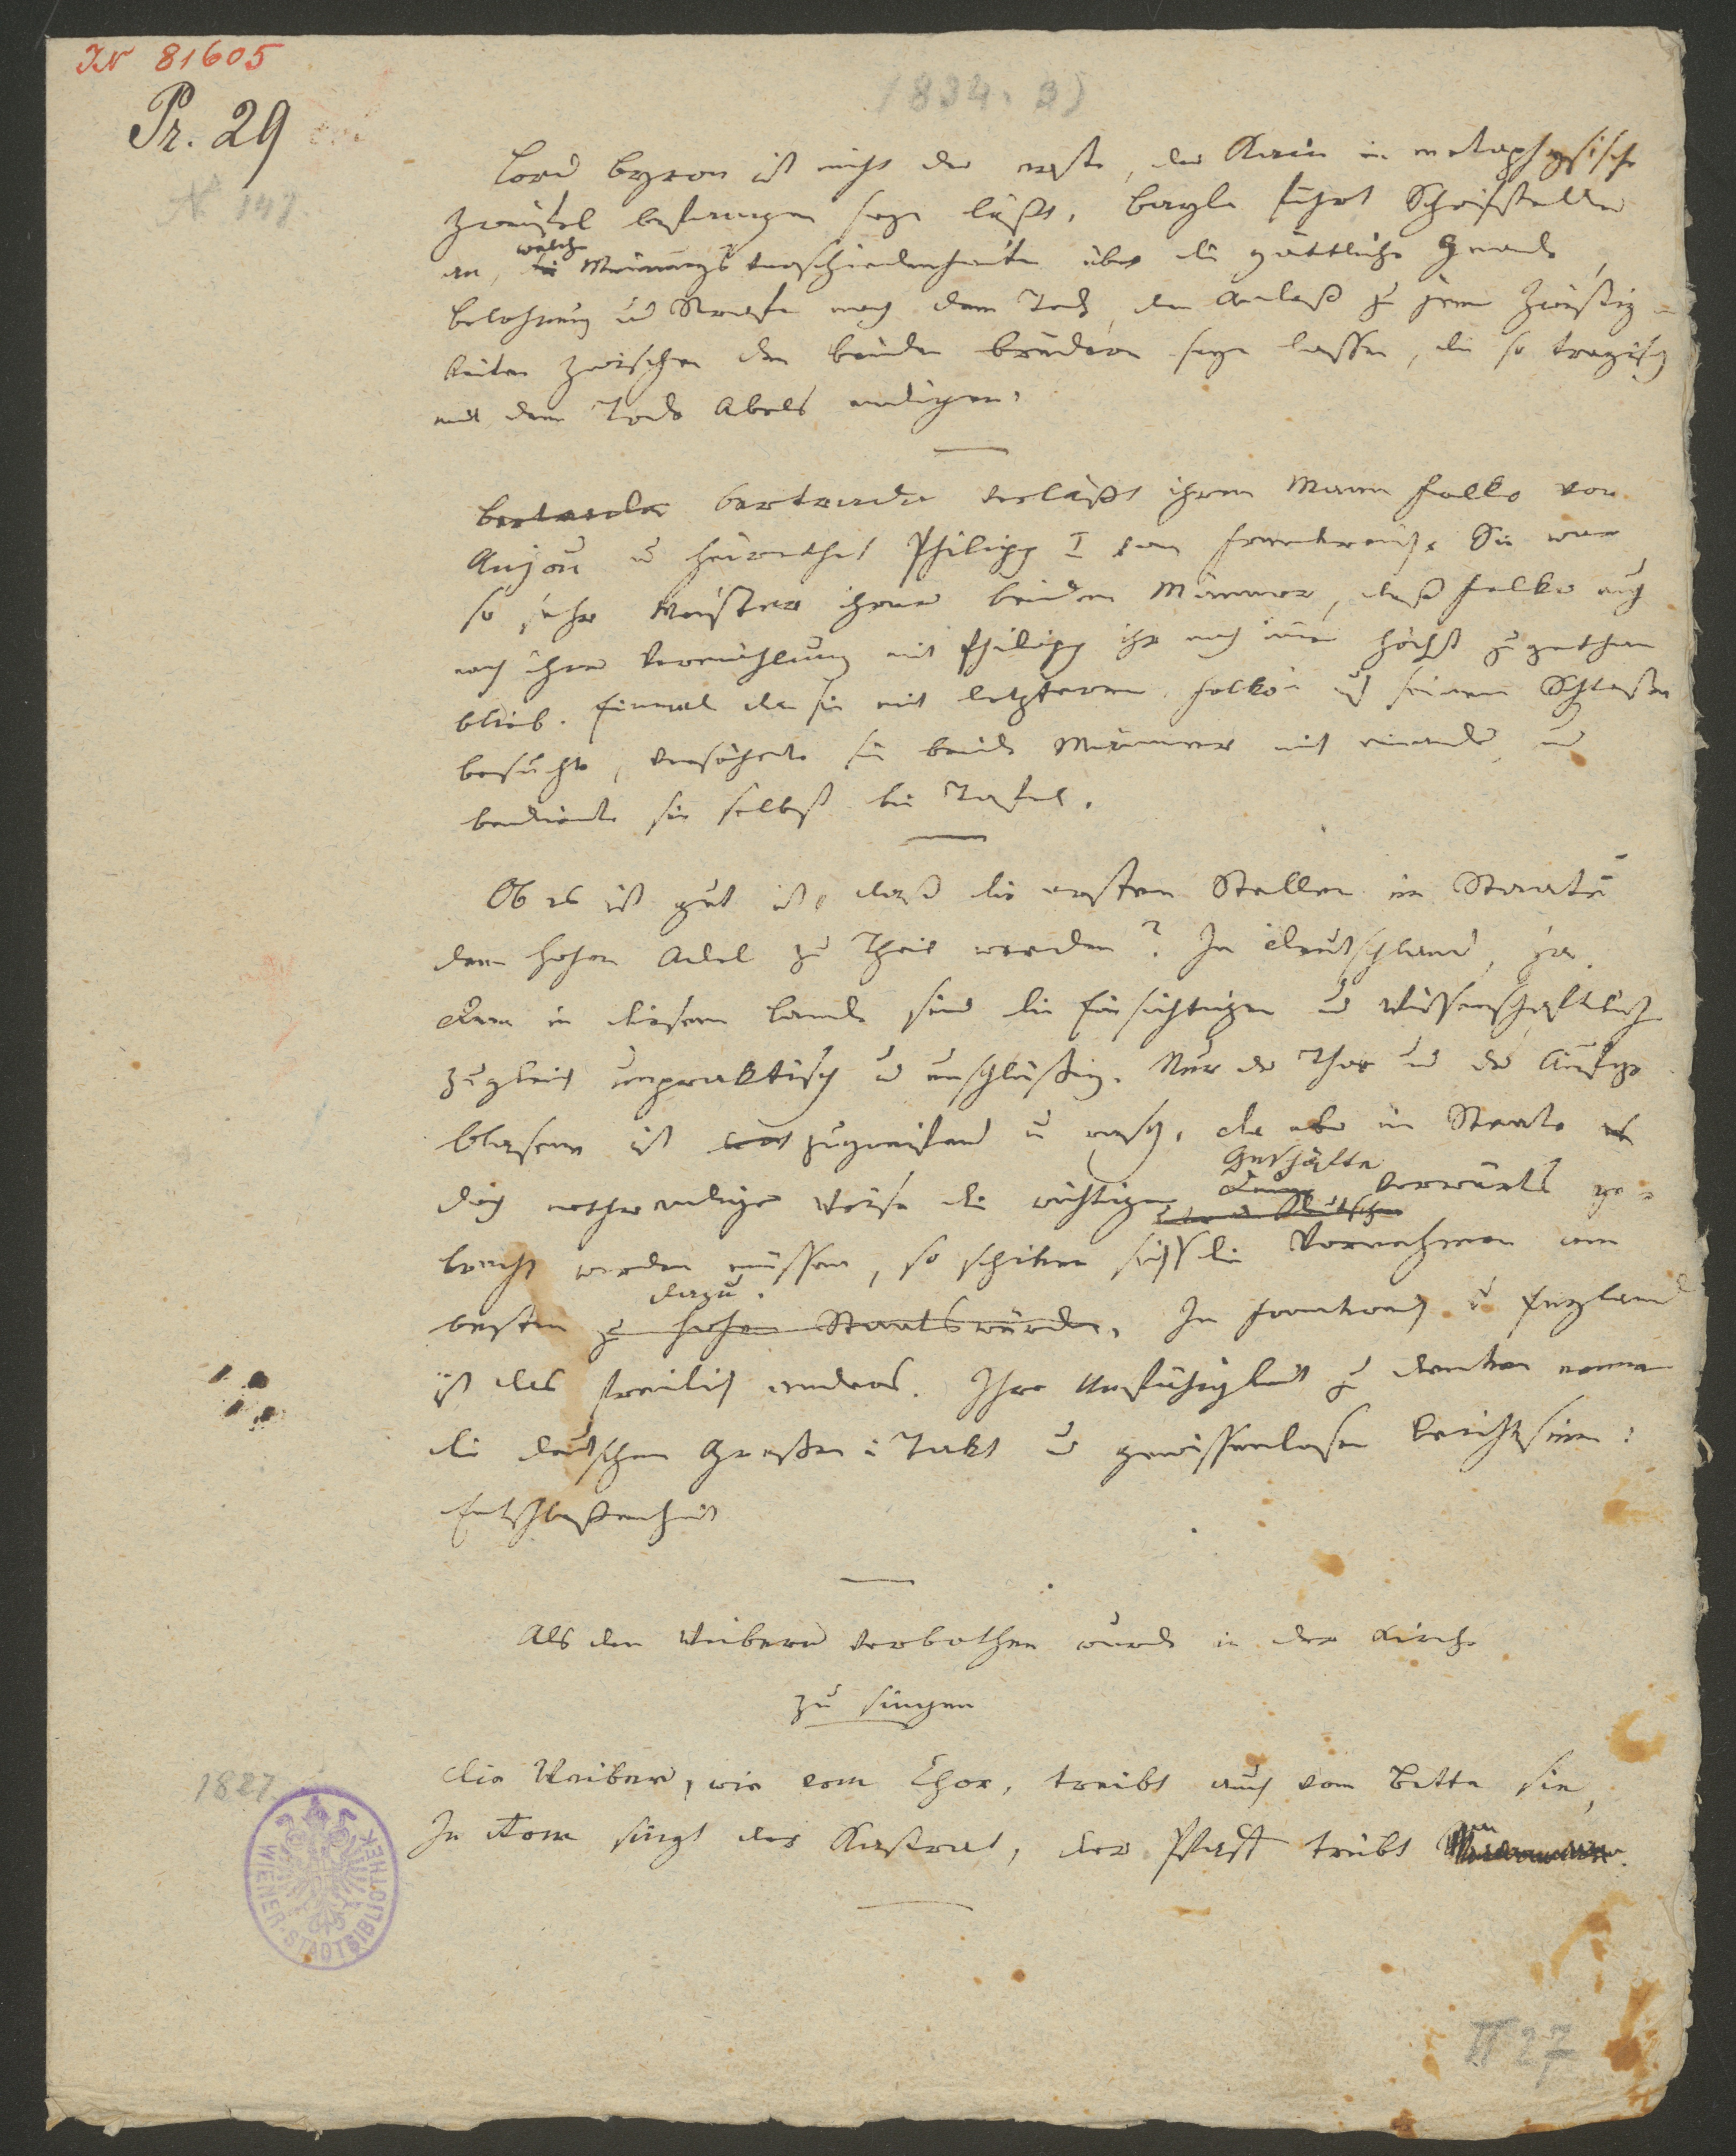 IN 81605
Pr. 29
1834. 3)
N 147.
Lord Byron ist nicht der erste, der Kain in metaphysische
Zweifel befangen seyn läßt. Bayle führt Schriftsteller
an, welche die Meinungsverschiedenheiten über die göttliche Gnade,
Belohnung und Strafe nach dem Tod, den Anlaß zu jenen Zwistig-
keiten zwischen den beiden Brüdern seyn lassen, die so tragisch
mit dem Tode Abels endigen.
Bertrade verläßt ihren Mann Folko von
Anjou u heurathet Philipp I von Frankreich. Sie war
so sehr Meister ihrer beiden Männer, daß Folko auch
nach ihrer Vermählung mit Philipp ihr noch immer höchst zugethan
blieb. Einmal da sie mit letzterem Folko'n auf seinem Schlosse
besuchte, versöhnte sie beide Männer mit einander und
bediente sie selbst bei Tafel.
Ob es ist gut ist, daß die ersten Stellen im Staate
dem hohen Adel zu Theil werden? In Deutschland, ja.
Denn in diesem Lande sind die Einsichtigen und Wissenschaftlich
zugleich unpraktisch und unschlüssig. Nur der Thor und der Aufge-
blasene ist zugreifend u rasch. Da aber im Staate
doch nothwendiger Weise die wichtigen Geschäfte vorwärts ge-
bracht werden müssen, so schicken sich die Vornehmen am
besten dazu. zu hohen Staatswürden. In Frankreich u England
ist das freilich anders. Ihre Unfähigkeit zu denken nennen
die deutschen Großen: Takt und gewissenlosen Leichtsinn:
Entschlossenheit
Als den Weibern verbothen wurde in der Kirche
zu singen
1827.
Die Weiber, wie vom Chor, treibt auch vom Bette sie,
In Rom singt der Kastrat, der Pfaff treibt
WIENER STADTBIBLIOTHEK
II 27